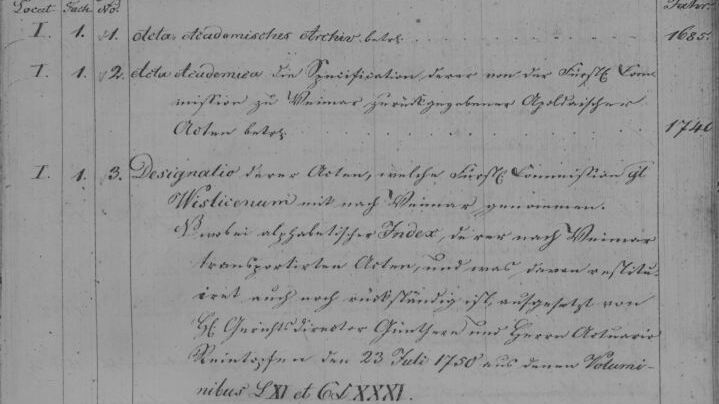 Locat. Fach. No. Jahr.
I. 1. 1. Acta Academisches Archiv betr. 1685.
I. 1. 2. Acta Academica die Specification derer von der Fürstl. Com-
mission zu Weimar zurückgegebener Apoldaischer
Acten betr. 1746
I. 1. 3. Designatio derer Acten, welche Fürstl. Commission
Wislicenum mit nach Weimar genommen.
wobei alphabetischer Index, derer nach Weimar
transportirten Acten, und was davon restitu-
iret auch noch rückständig ist, ausgesetzt von
H. Gerichtsdirector Günthern und Herrn Actuario
Reintopfen den 23 Juli 1750 aus denen Volumi-
nibus LXI et CLXXXI.